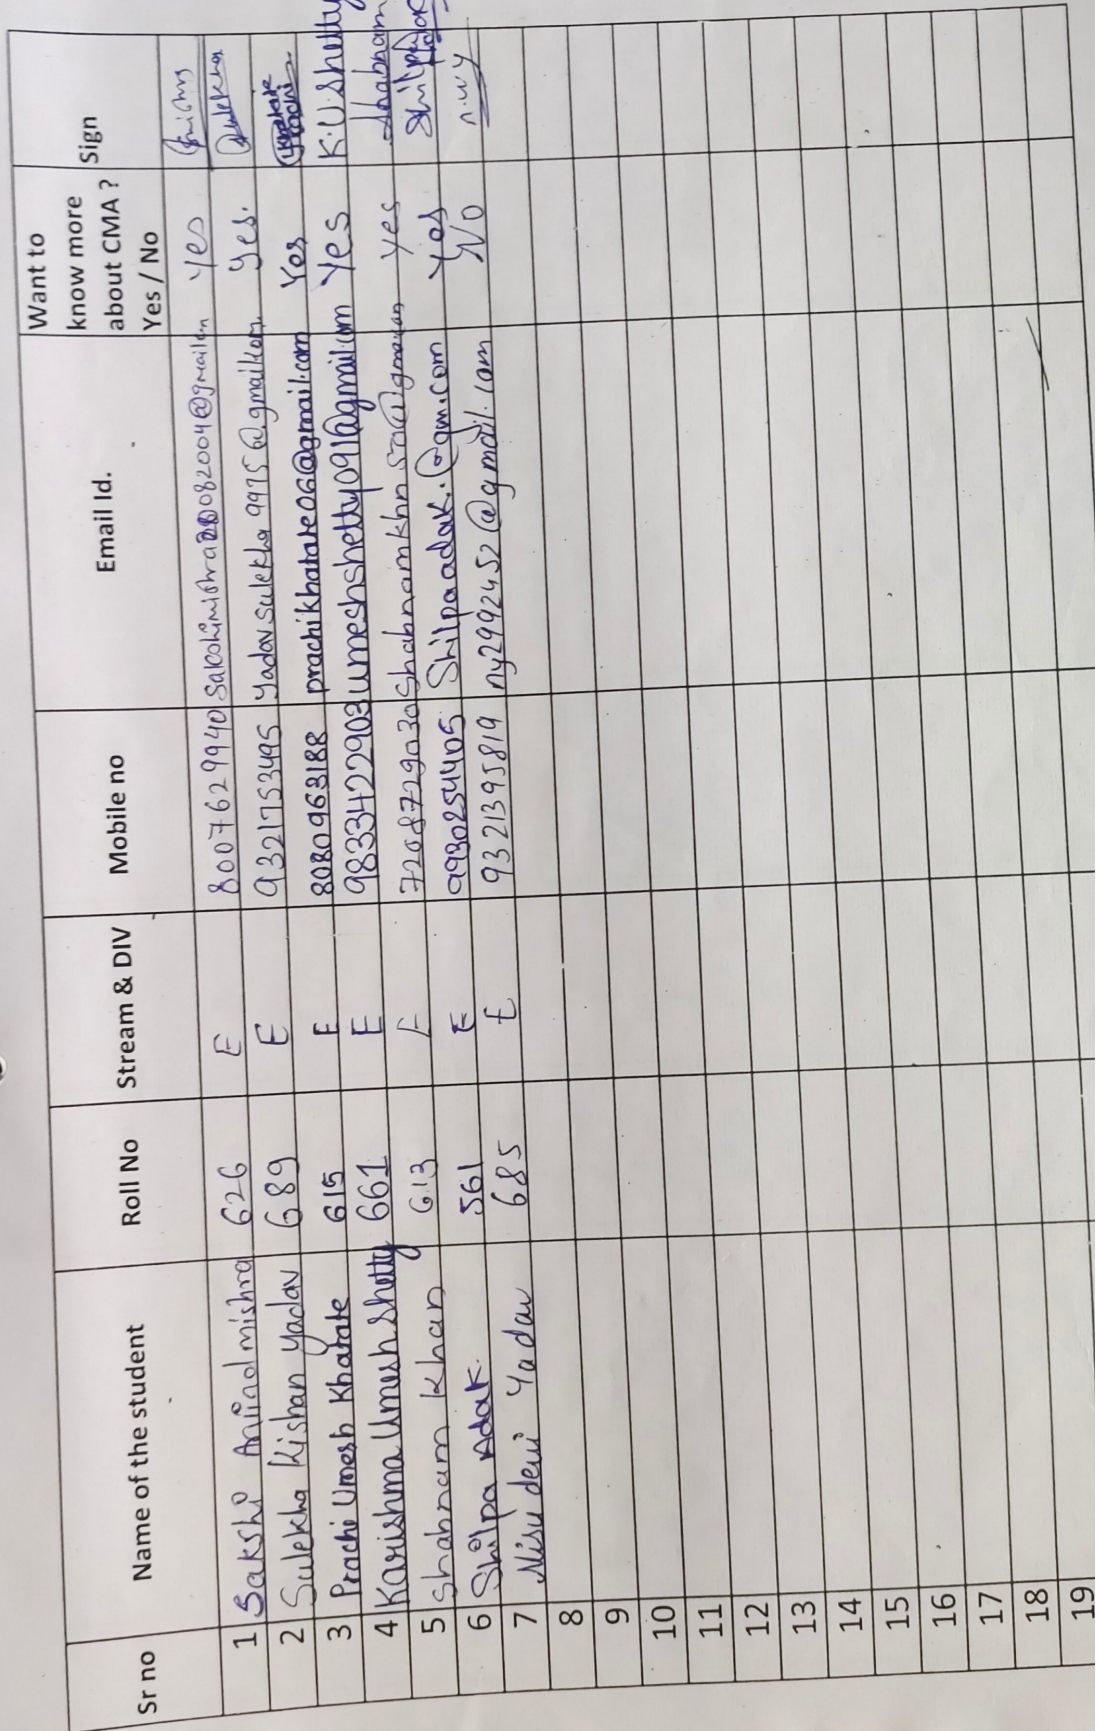 Sr no Name of the student Roll No Stream & DIV Mobile no Email Id. Want to know more about CMA ? Yes / No Sign
1 Sakshi Mishra 626 E 8007629940 yes
2 Sulekha Kishan Yadav 689 E 9321753495 Yadavsulekha9975@gmailcom. Yes. Sulekha
3 Prachi Umesh Khatate 615 E 8080963188 prachikhatate06@gmail.com Yes
4 Karishma Umesh Shetty 661 E 9833422903 umeshshetty091@gmail.com Yes K.U.Shetty
5 Shabnam Khan 613 E 7208729030 yes Shabnam
6 Shilpa Adak. 561 E 9930254405 Shilpaadak.@gm.com Yes Shilpa
7 devi Yadav 685 E 9321395819 ny2992452@gmail.com NO n.w.y
8
9
10
11
12
13
14
15
16
17
18
19